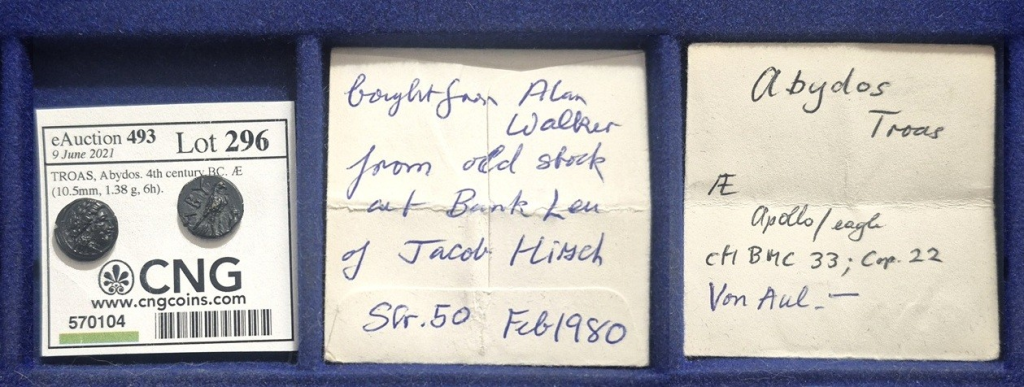 eAuction 493
9 June 2021
Lot 296
TROAS, Abydos. 4th century BC. Æ
(10.5mm, 1.38 g, 6h).
CNG
www.cngcoins.com
570104
bought from Alan
Walker
from old stock
at Bank Leu
of Jacob Hirsch
Sfr. 50 Feb 1980
Abydos
Troas
Æ
Apollo/eagle
cf BMC 33; Cop. 22
Von Aul. —